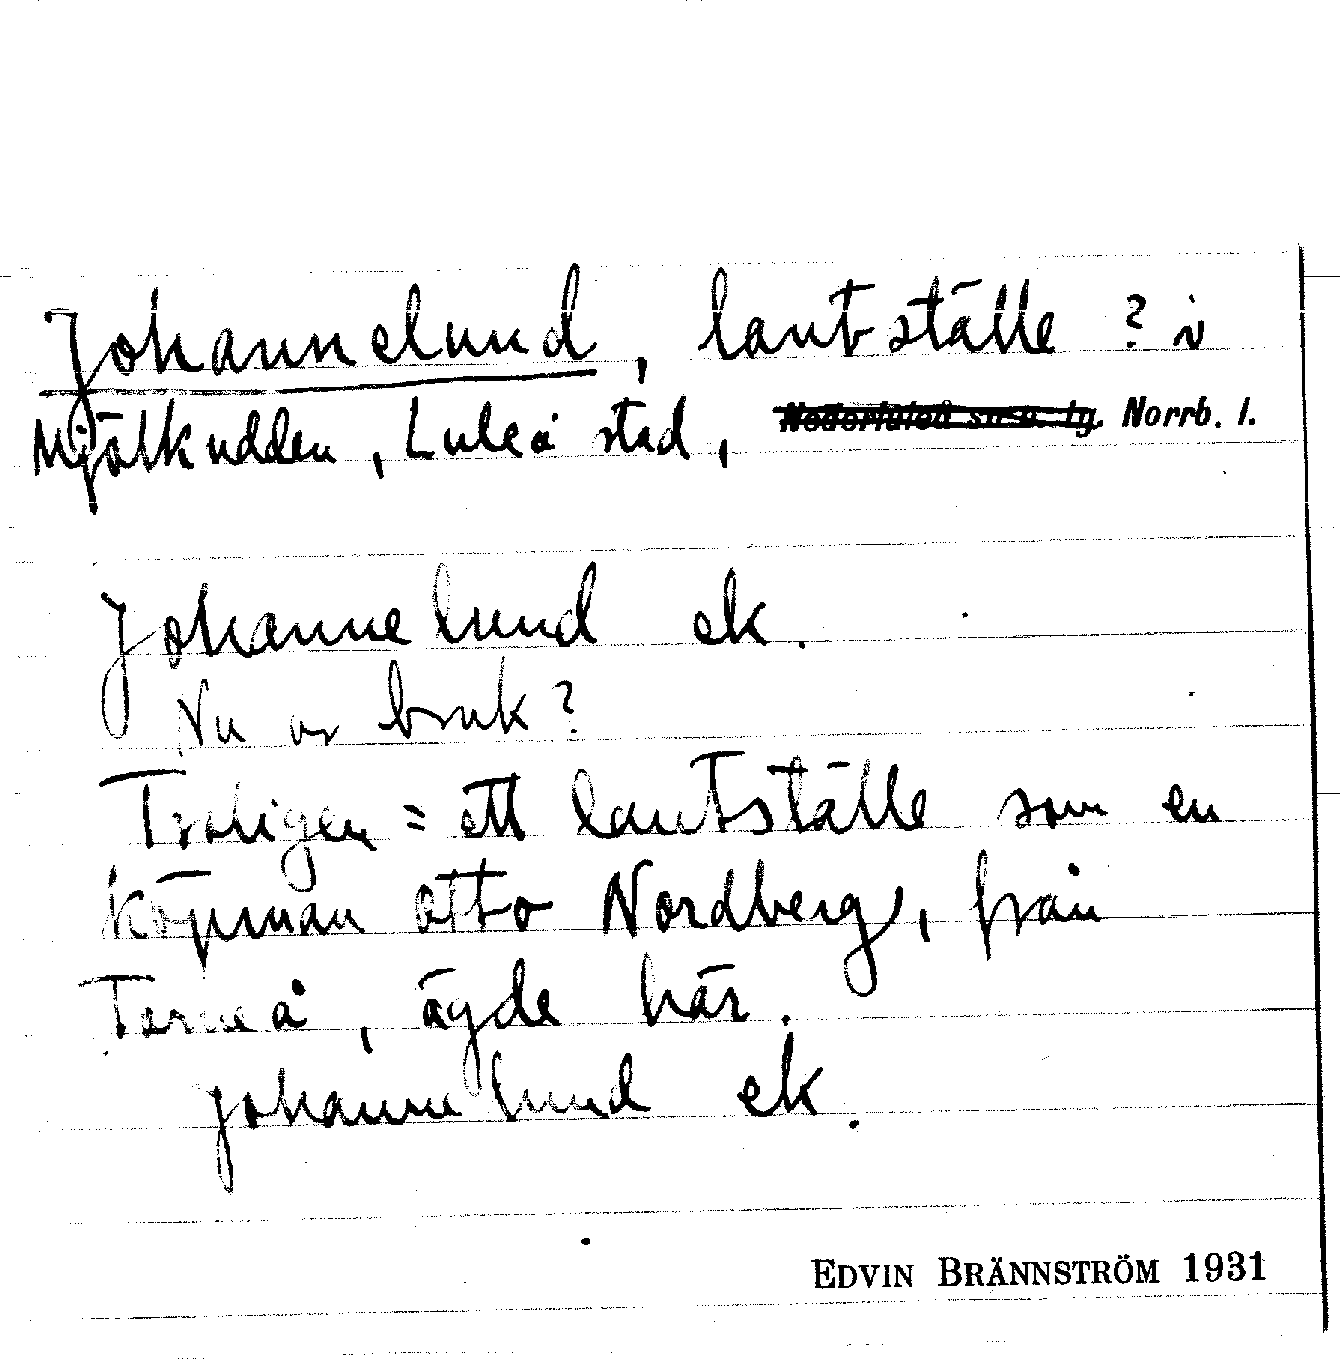 Johannelund, lantställe ? i
Mjölkudden, Luleå stad, Nederluleå sn o. tg. Norrb. l.
Johannelund ek.
Nu ur bruk?
Troligen = ett lantställe som en
köpman Otto Nordberg, från
Torneå, ägde här.
Johannelund ek.
EDVIN BRÄNNSTRÖM 1931